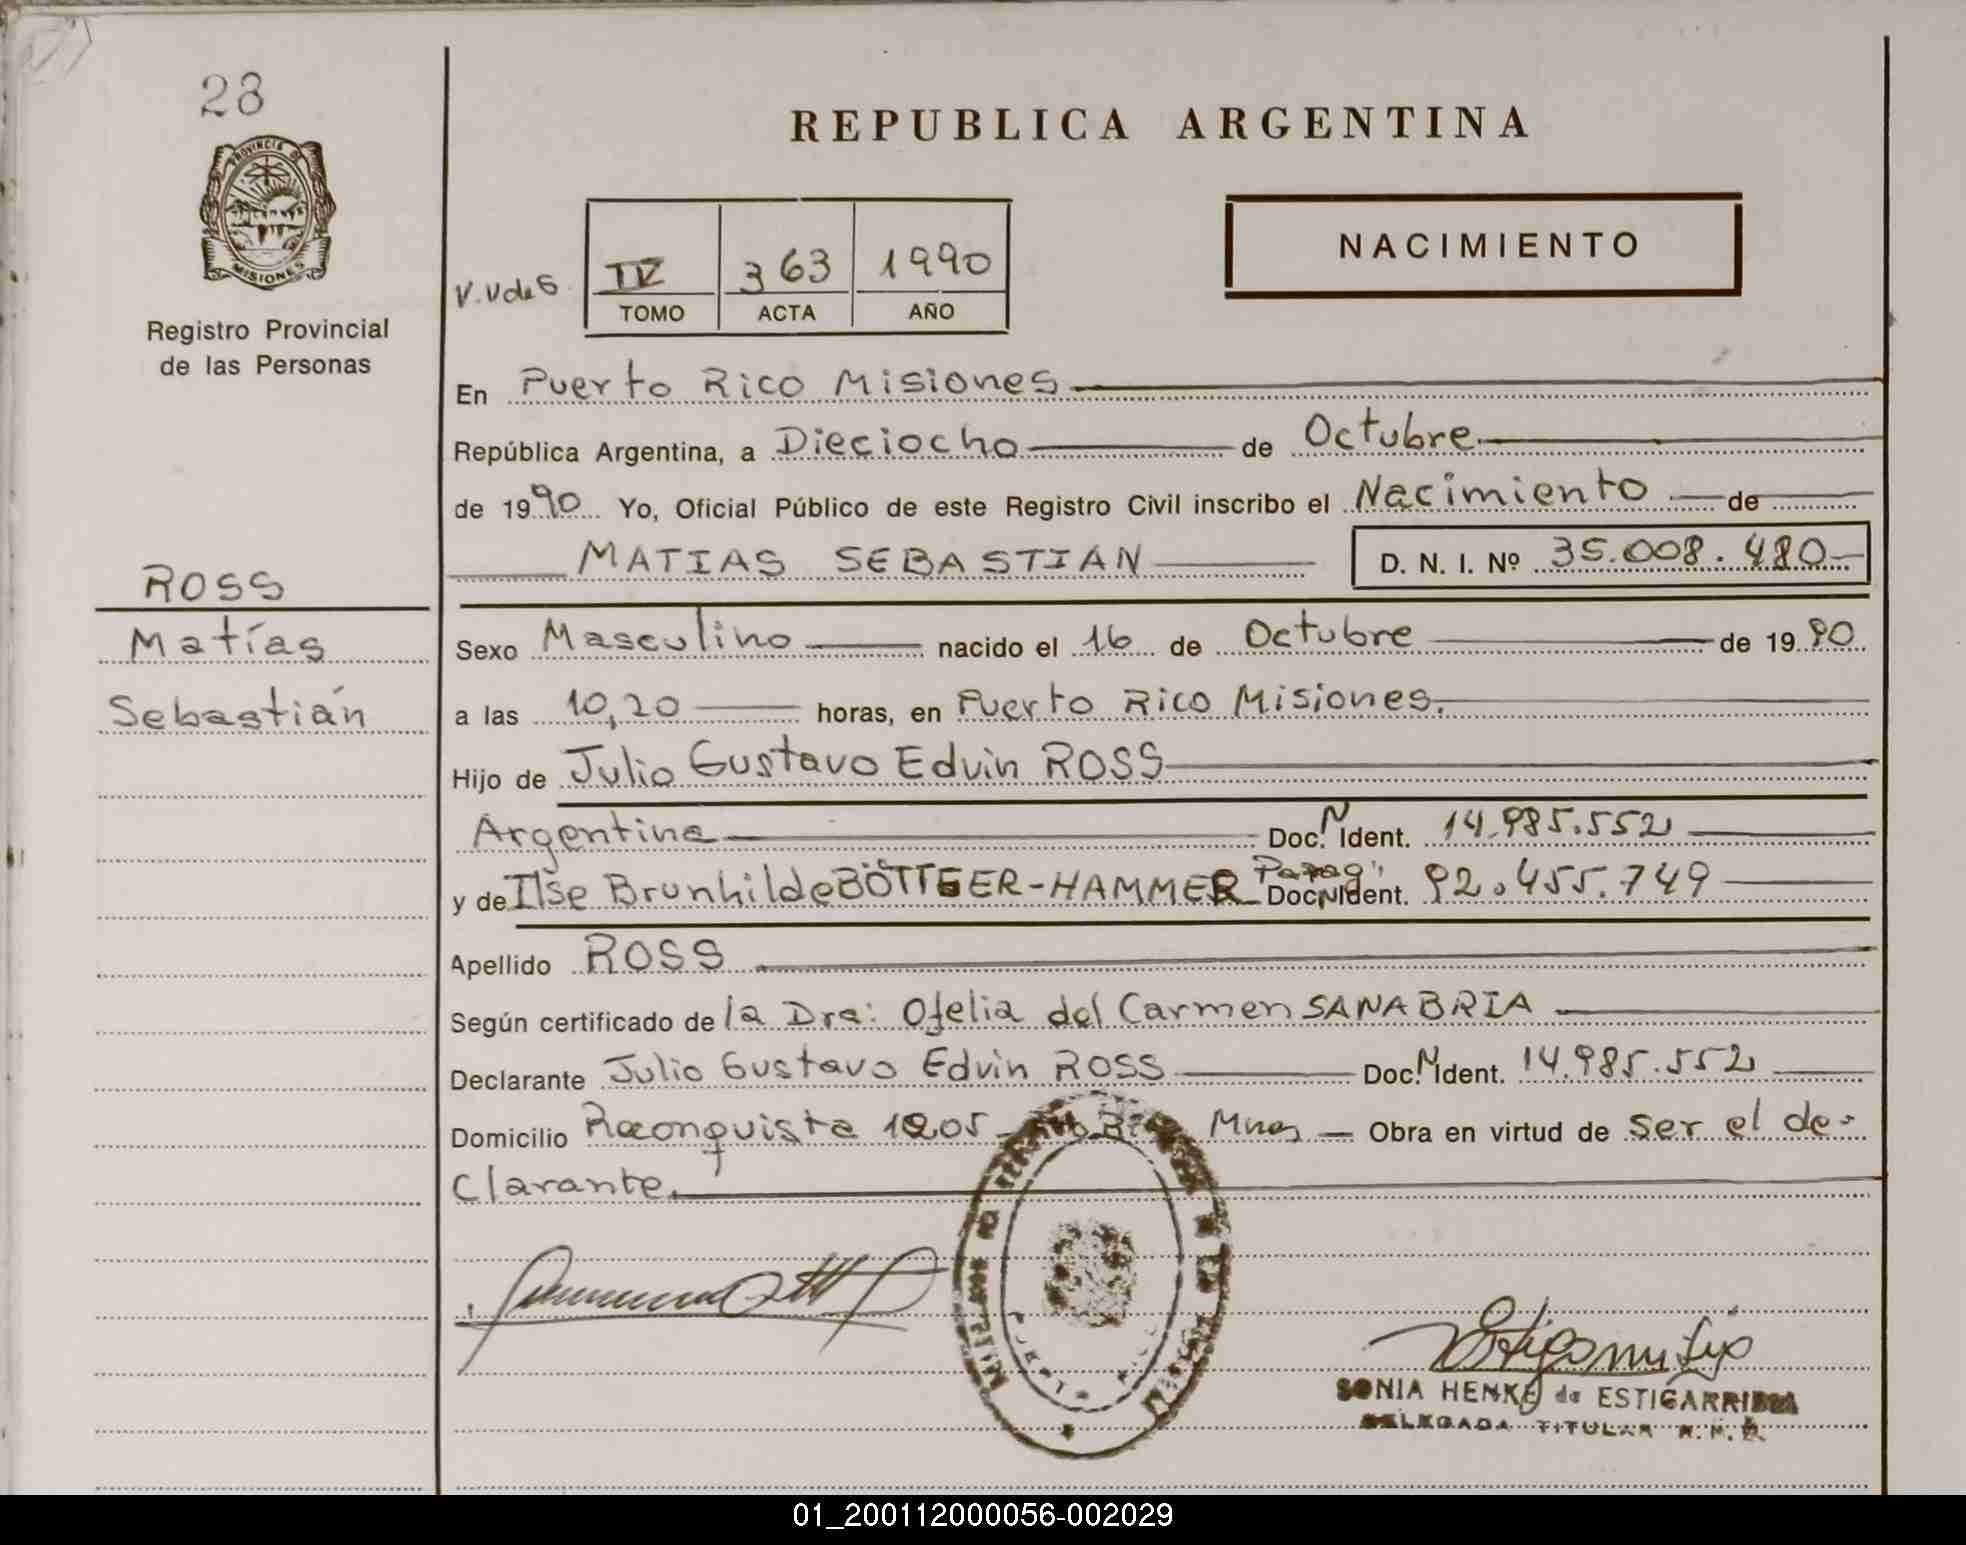 28
PROVINCIA DE
MISIONES
Registro Provincial
de las Personas
REPUBLICA ARGENTINA
NACIMIENTO
IV 363 1990
TOMO ACTA AÑO
En Puerto Rico Misiones
República Argentina, a Dieciocho de Octubre
de 1990 Yo, Oficial Público de este Registro Civil inscribo el Nacimiento de
MATIAS SEBASTIAN D. N. I. Nº 35.008.480
ROSS
Matías
Sebastián
Sexo Masculino nacido el 16 de Octubre de 1990
a las 10,20 horas, en Puerto Rico Misiones.
Hijo de Julio Gustavo Edvin ROSS
Argentina Doc. N Ident. 14.985.552
y de Ilse Brunhilde BÖTTGER-HAMMER Parag. Doc N Ident. 92.455.749
Apellido ROSS
Según certificado de la Dra: Ofelia del Carmen SANABRIA
Declarante Julio Gustavo Edvin ROSS Doc. N Ident. 14.985.552
Domicilio Reconquista Mnes Obra en virtud de ser el de-
clarante.
SONIA HENKE de ESTIGARRIBIA
DELEGADA TITULAR R.P.
01_200112000056-002029